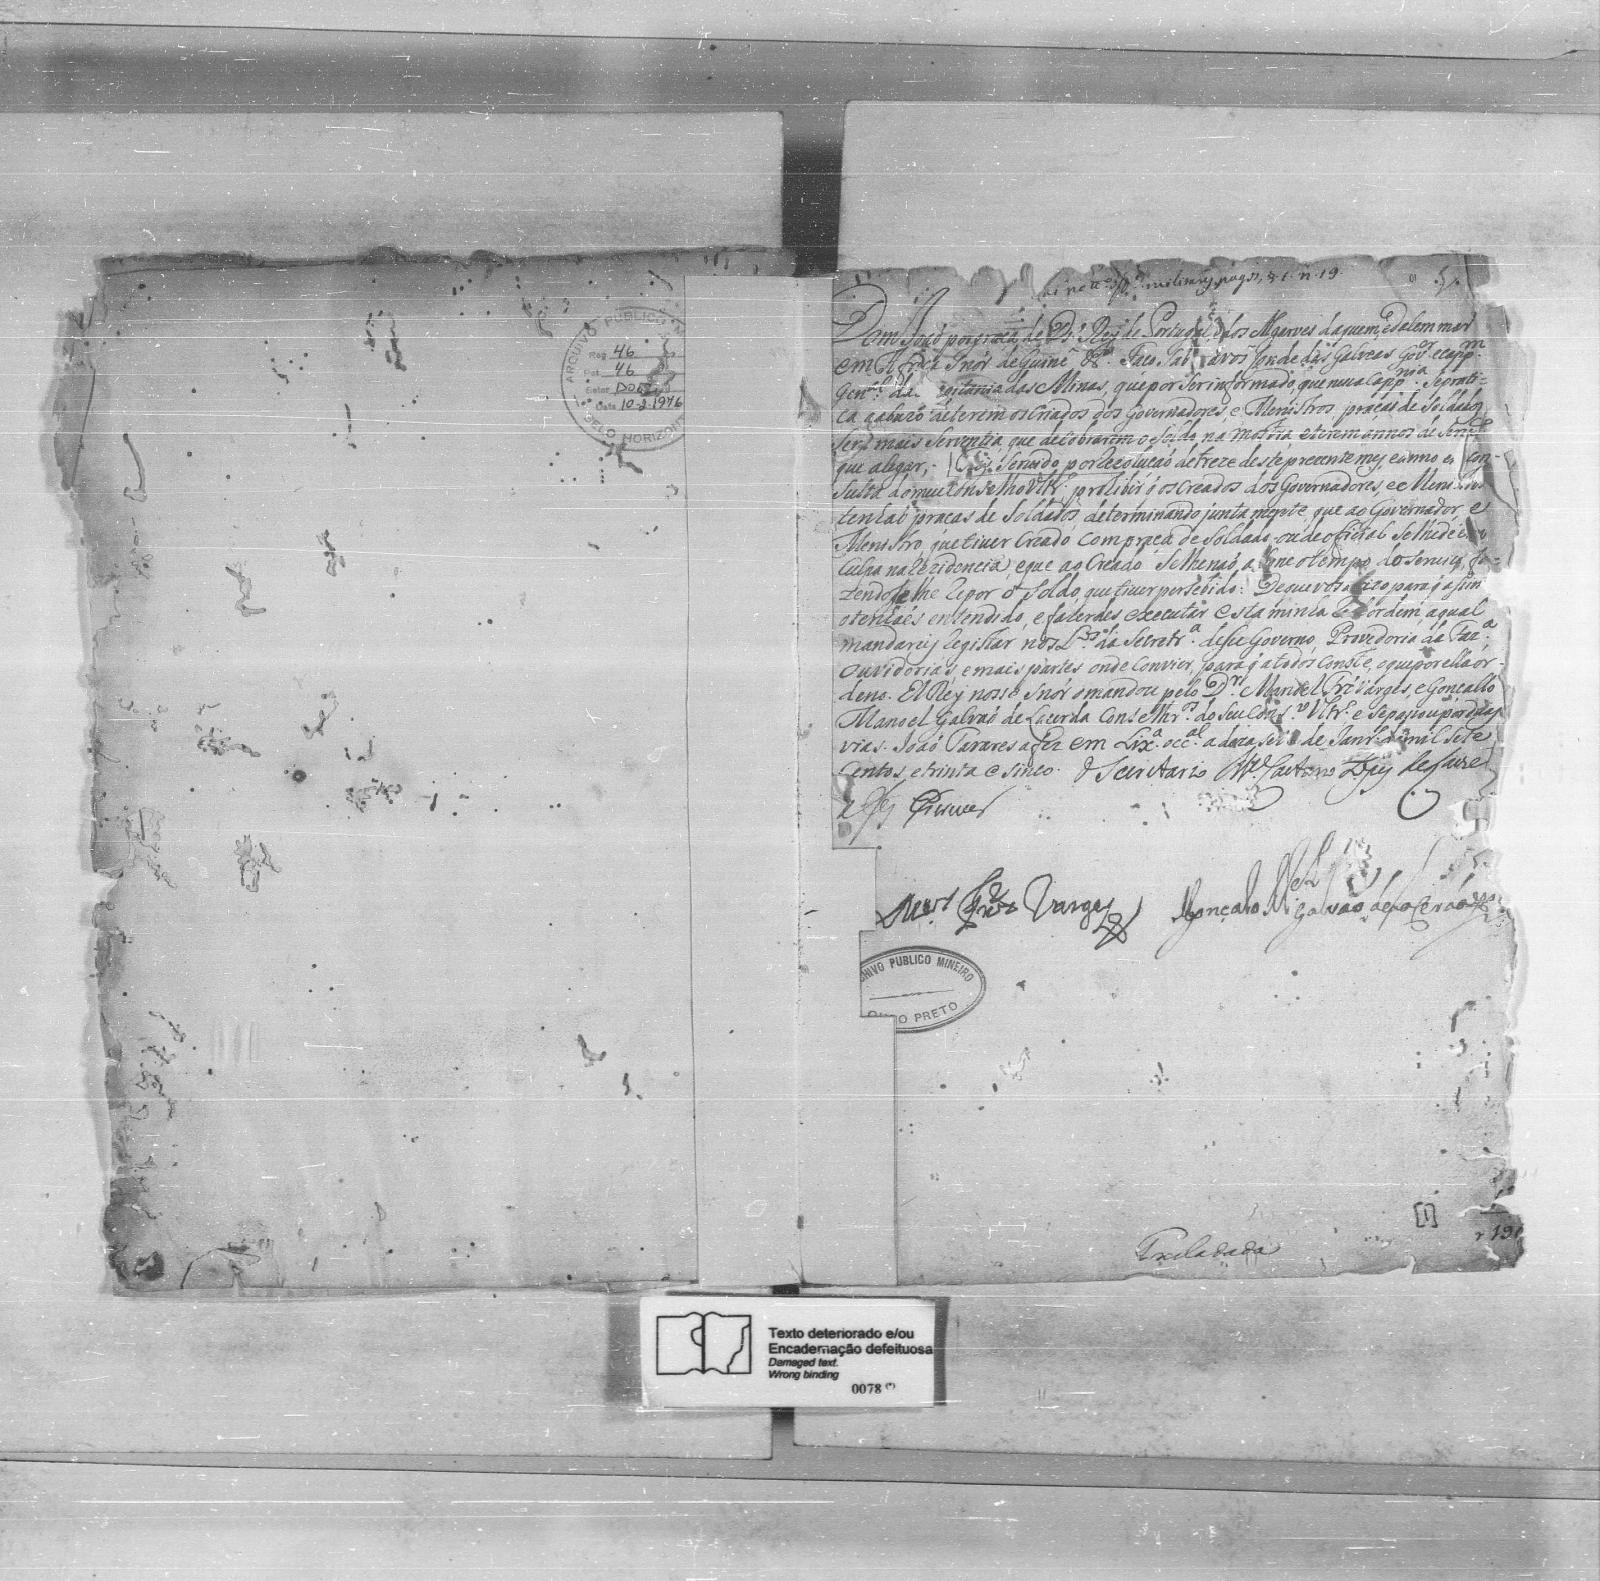 ARQUIVO PÚBLICO M
BELO HORIZONT
Reg 46
Pat 46
Setor DOE
Data 10-2-1976
militar, pag. 1. n. 19.
Dom João por graça de Ds. Rey de Portugal, e dos Algarves daquem, e dalem mar
em Africa Snōr de Guiné &ª. Faço saber avos Conde das Galveas Govor. e cappm.
Genal. da Capitania das Minas, que por ser informado, que nessa Cappnia. se prati-
ca o abuzo de terem os Criados dos Governadores, e Menistros praças de Soldados
sem mais serventia que de cobrarem o Soldo na mostra e terem annos de Serviço
que alegar, Servido por Rezolução de treze deste prezente mez, e anno em Con-
sulta do meu Conselho Ultr. prohibir q̃ os Creados dos Governadores, e Menistros
tenhaõ praças de Soldados, determinando juntamente, que ao Governador, e
Menistro, que tiver Creado Com praça de Soldado, ou de official se lhe dê em
Culpa na Rezidencia, e que ao Creado se lhe naõ abone o tempo do Serviço, fa-
zendoselhe Repor o Soldo, que tiver persebido: De que vos avizo para q̃ assim
o tenhaes entendido, e façaes executar esta minha Rl. ordem, a qual
mandareis Registar nos Los. da Secretrª. desse Governo, Provedoria da Fazª.
Ouvidorias, e mais partes onde Convier, para q̃ a todos Conste, o que por ella or-
deno. El Rey nosso Snōr o mandou pelo Dr. Manoel Frz̃ Varges, e Gonçallo
Manoel Galvaõ de Lacerda Conselhros. do seu Consº. Ultr. e se passou por duas
vias. Joaõ Tavares a fez em Lixª. occal. a dezaseis de Janrº. de mil sete
Centos, e trinta e Sinco. O Secretario Mel. Caetano Lopes de Lavre
a fes escrever
Mel. Frz̃ Vargas
Gonçalo Ml. Galvão de Lacerda
CHIVO PUBLICO MINEIRO
OURO PRETO
[1]
Tresladada
Texto deteriorado e/ou
Encadernação defeituosa
Damaged text.
Wrong binding
0078 (*)